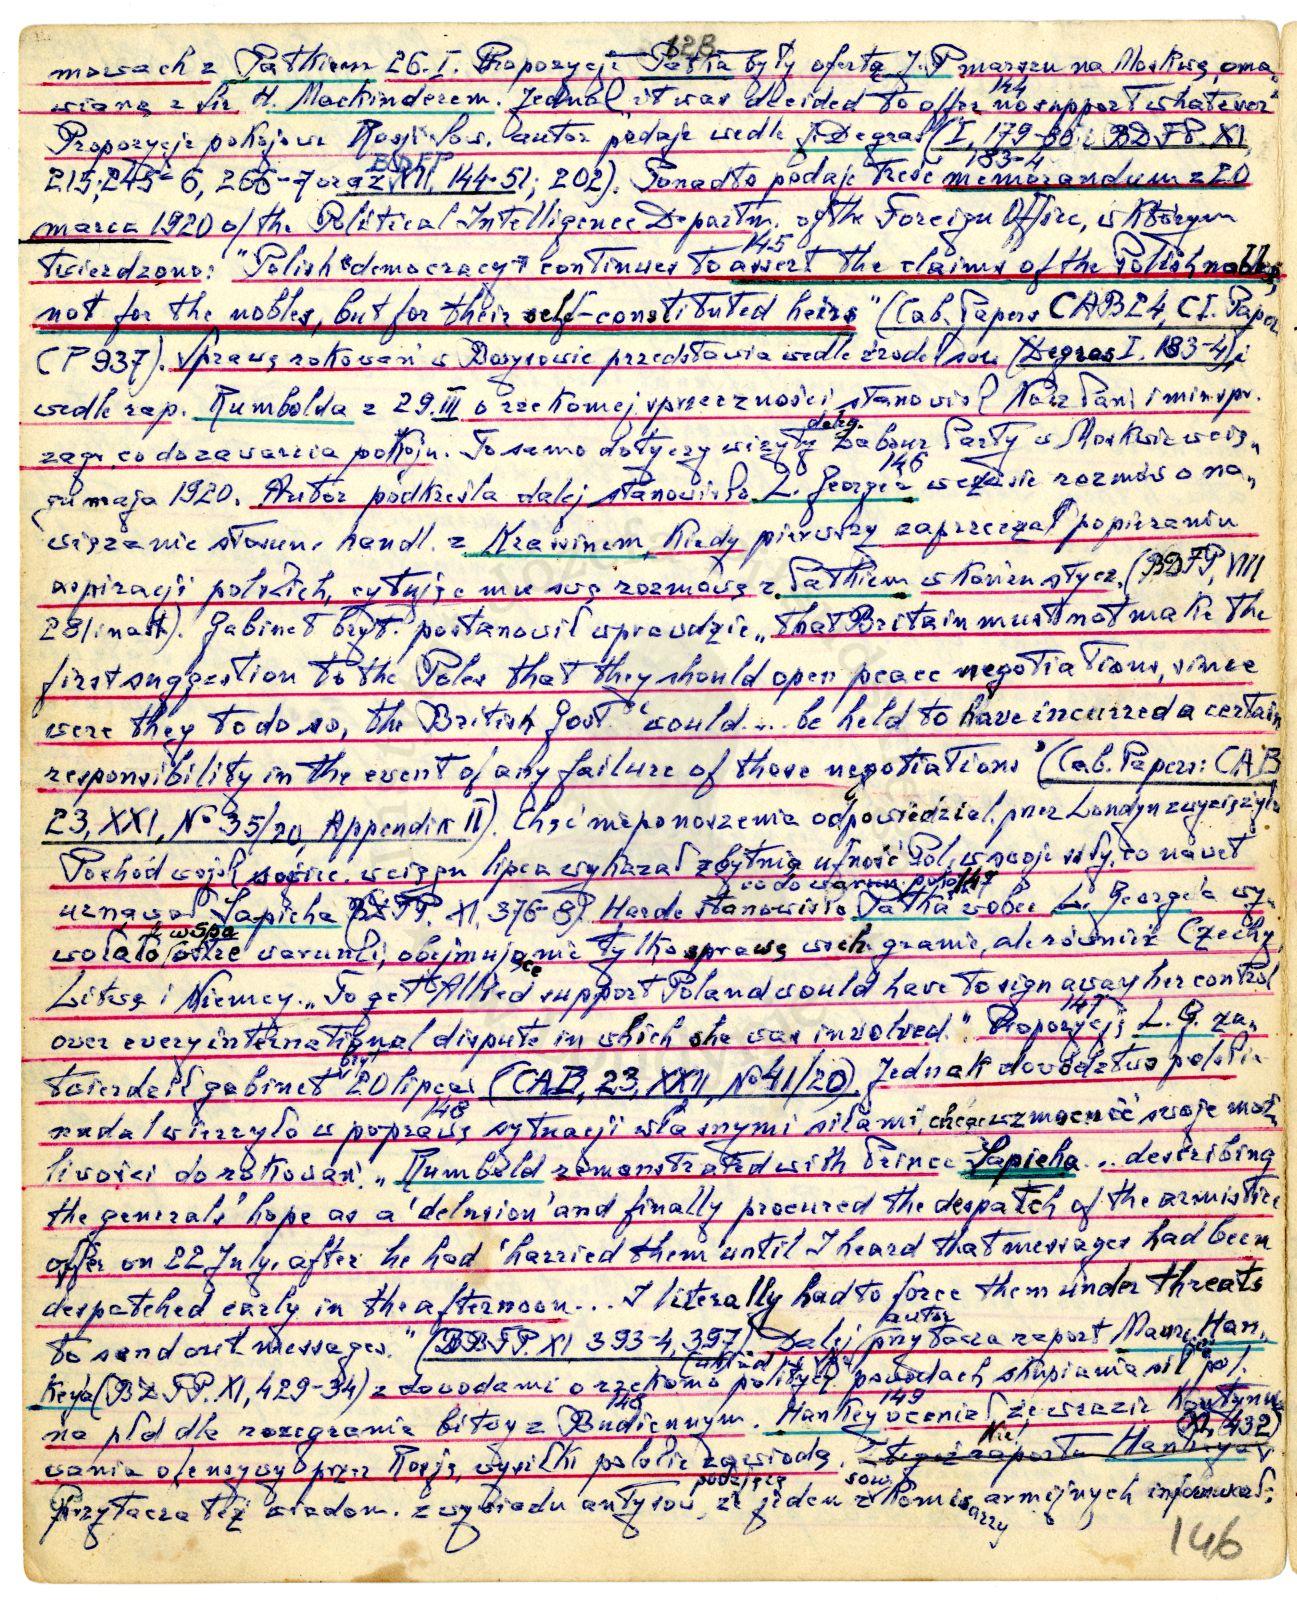 128
mowach z Patkiem 26.I. Propozycje Patka były ofertą J.P. marszu na Moskwę, oma-
wianą z Sir H. Mackinderem. Jednak it was decided to offer "no support whatever" 144
Propozycje pokojowe Rosji Sow. autor podaje wedle J. Degras (I, 179-80 i BDFP. XI,
215, 245-6, 266-7 oraz BDFP XII, 144-51; 202). Ponadto podaje treść memorandum z 20 183-4
marca 1920 of the Political Intelligence Departm. of the Foreign Office, w którym
twierdzono: "Polish "democracy" continues to assert the claims of the Polish nobles, 145
not for the nobles, but for their self-constituted heirs" (Cab. Papers CAB 24, C.I. Paper
CP 937). Sprawę rokowań w Borysowie przedstawia wedle źródeł sow. (Degras I, 183-4) i
wedle rap. Rumbolda z 29.III o rzekomej sprzeczności stanowisk Nacz. Pań. i min. spr.
zagr. co do zawarcia pokoju. To samo dotyczy wizyty deleg. Labour Party w Moskwie w cią-
gu maja 1920. Autor podkreśla dalej stanowisko L. George'a w czasie rozmów o na- 146
wiązanie stosun. handl. z Krasinem, kiedy pierwszy zaprzeczał popieraniu
aspiracji polskich, cytując mu swą rozmowę z Patkiem w końcu stycz. (BDFP, VIII
281 i nast.). Gabinet bryt. postanowił wprawdzie "that Britain must not make the
first suggestion to the Poles that they should open peace negotiations, since
were they to do so, the British Govt. 'would... be held to have incurred a certain
responsibility in the event of any failure of those negotiations" (Cab. Papers: CAB
23, XXI, No 35/20, Appendix II). Chęć nieponoszenia odpowiedzial. przez Londyn zwyciężyła
Pochód wojsk sowiec. w ciągu lipca wykazał zbytnią ufność Pol. w swoje siły, co nawet
uznawał Sapieha (BDFP. XI, 376-8). Harde stanowisko Patka co do warun. pokoju 147 wobec L. George'a wy-
wołało w Spa ostre warunki, obejmujące nie tylko sprawę wsch. granic, ale również Czechy,
Litwę i Niemcy. "To get Allied support Poland would have to sign away her control
over every international dispute in which she was involved." 147 Propozycję L. G. za-
twierdził gabinet bryt. 20 lipca (CAB, 23, XXII, No 41/20). Jednak dowództwo polskie
nadal wierzyło w poprawę sytuacji własnymi siłami, chcąc wzmocnić swoje moż- 148
liwości do rokowań. "Rumbold remonstrated with Prince Sapieha... describing
the generals' hope as a 'delusion' and finally procured the despatch of the armistice
offer on 22 July, after he had 'harried them until I heard that messages had been
despatched early in the afternoon... I literally had to force them under threats
to send out messages." (BDFP. XI 393-4, 397). Dalej autor przytacza raport Maur. Han-
key'a (BDFP. XI, 429-34) z dowodami o rzekomo politycz. powodach skupiania sił pol.
na płd dla rozegrania bitwy z Budiennym. 148 Hankey oceniał że w razie kontynuo- 149
wania ofensywy przez Rosję, wysiłki polskie zawiodą. (XI, 432) Nie! Z tegoż raportu Hankeya
Przytacza też wiadom. z wywiadu antysow. podającą że jeden z sow. komisarzy armijnych informował:
146